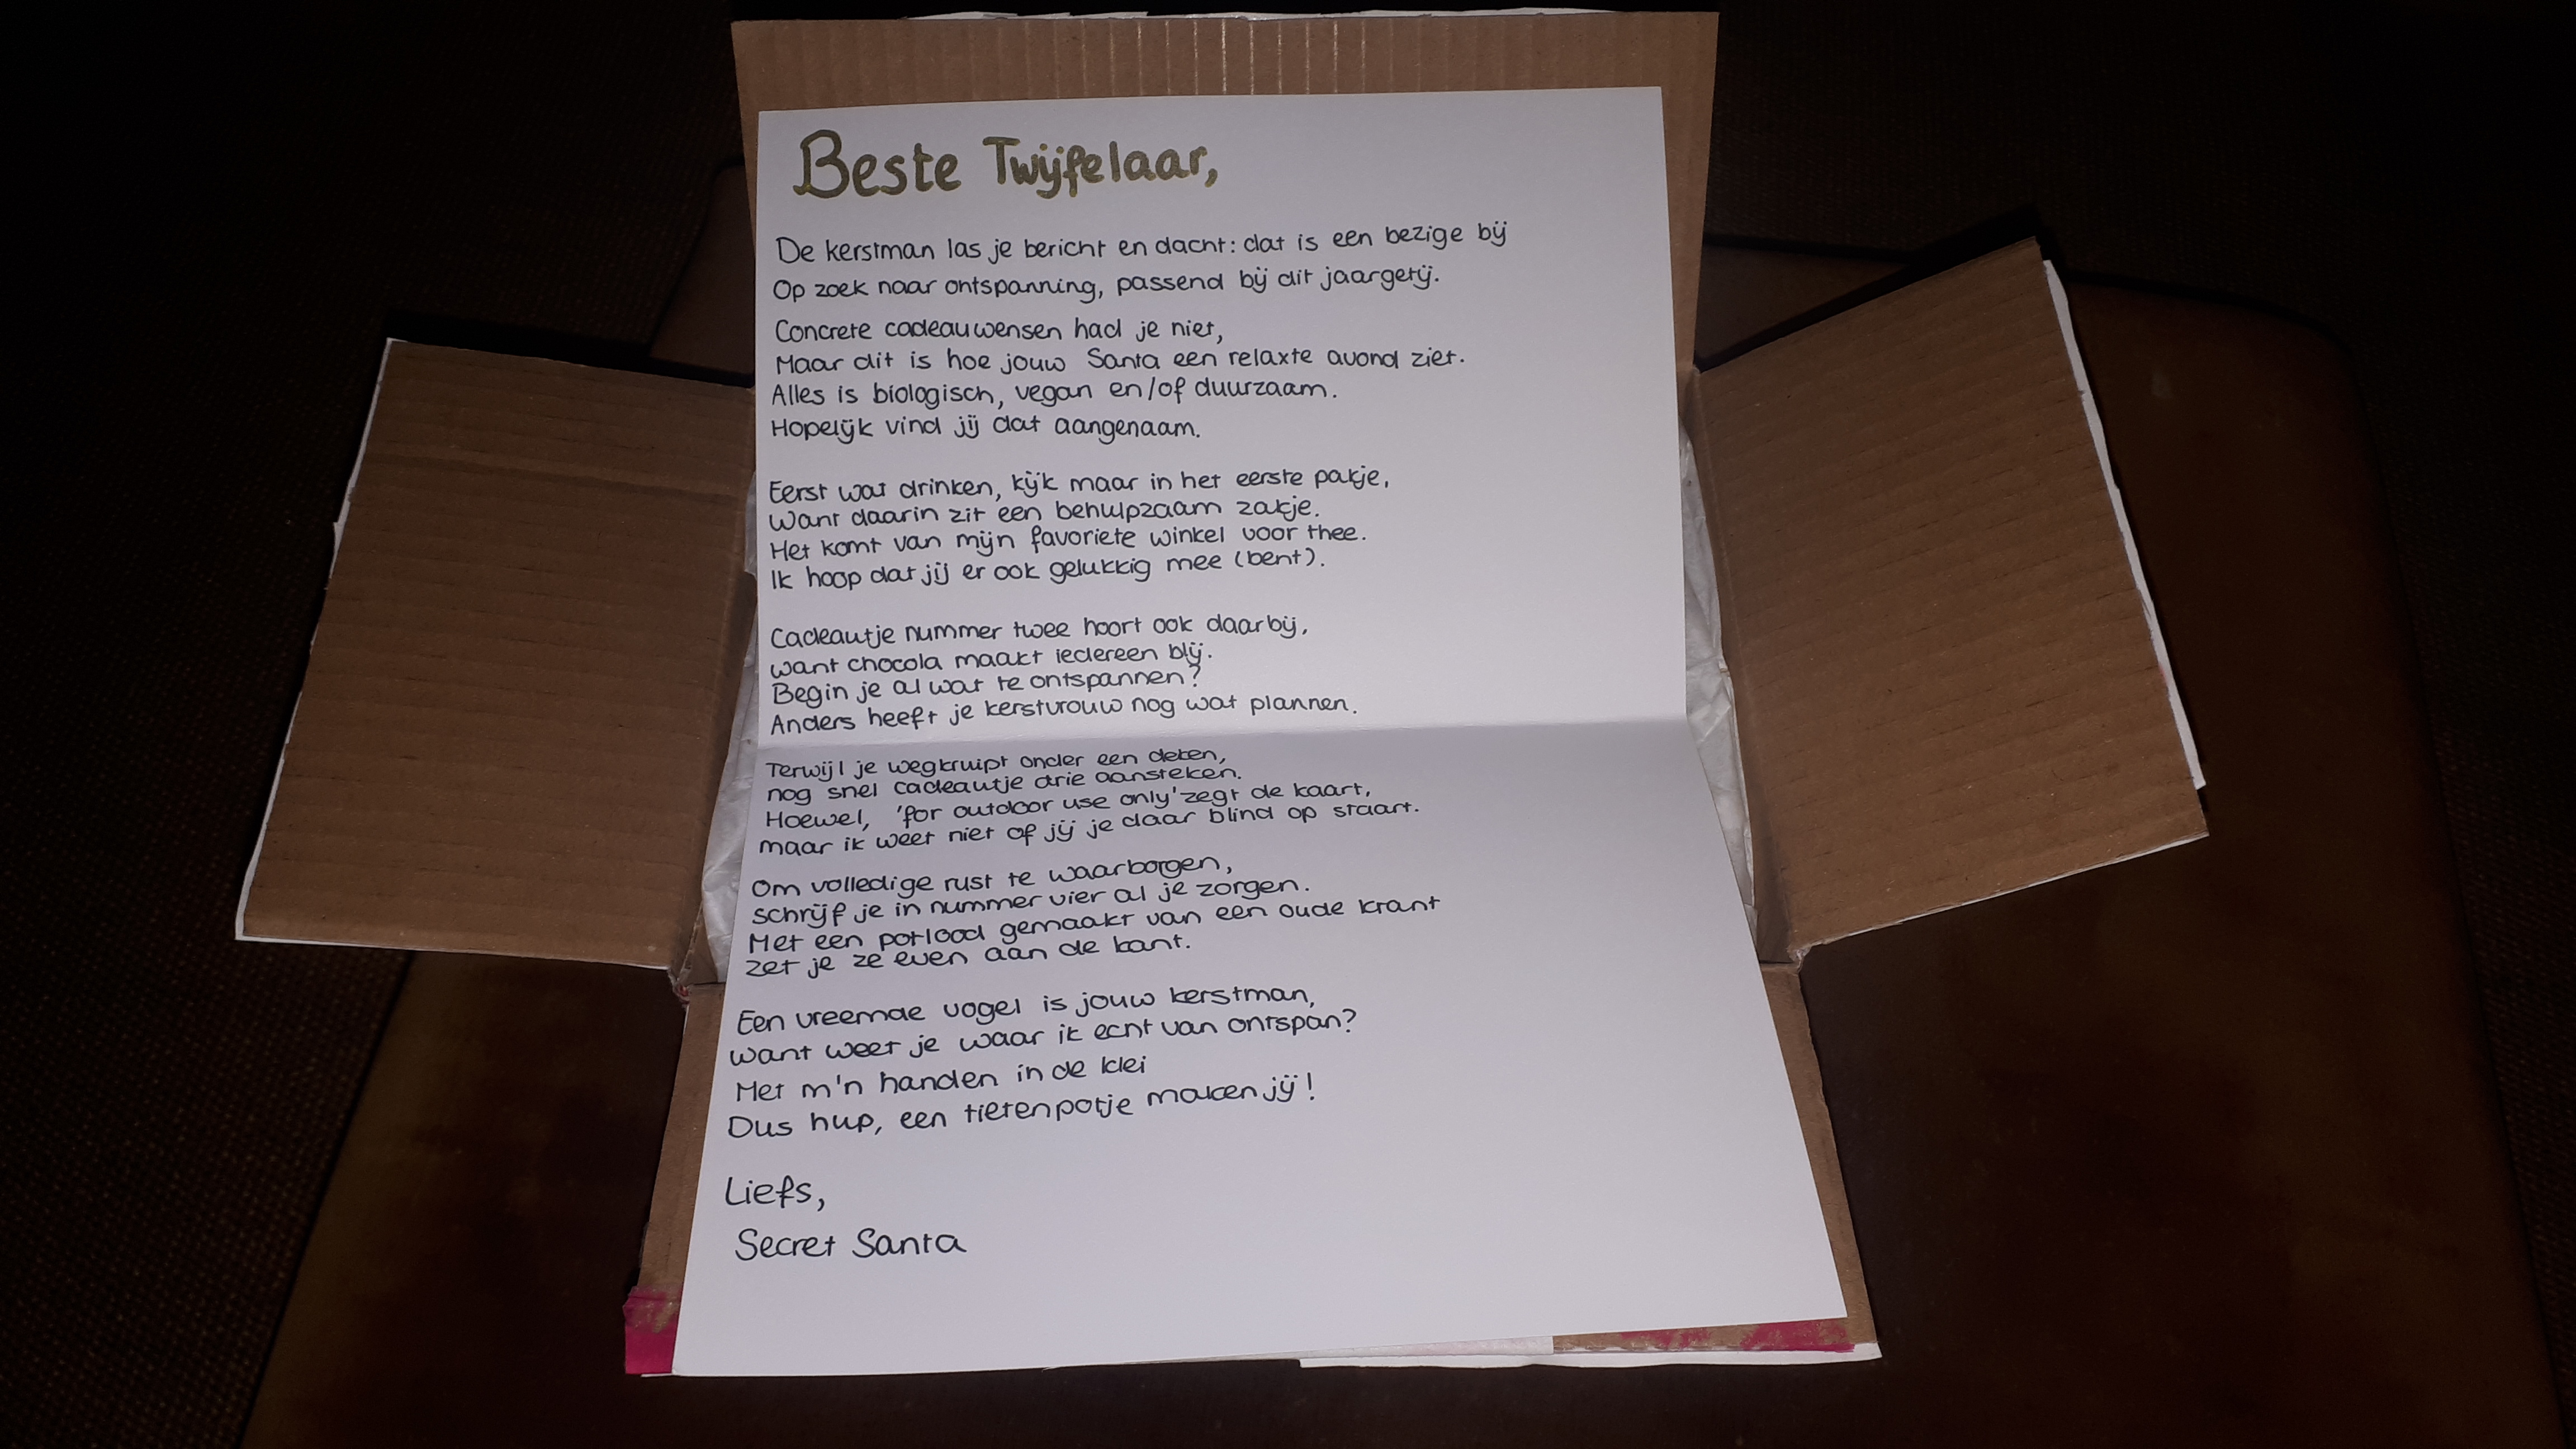 Beste Twijfelaar,
De kerstman las je bericht en dacht: dat is een bezige bij
Op zoek naar ontspanning, passend bij dit jaargetij.
Concrete cadeauwensen had je niet,
Maar dit is hoe jouw Santa een relaxte avond ziet.
Alles is biologisch, vegan en/of duurzaam.
Hopelijk vind jij dat aangenaam.
Eerst wat drinken, kijk maar in het eerste pakje,
Want daarin zit een behulpzaam zakje.
Het komt van mijn favoriete winkel voor thee.
Ik hoop dat jij er ook gelukkig mee (bent).
Cadeautje nummer twee hoort ook daarbij,
want chocola maakt iedereen blij.
Begin je al wat te ontspannen?
Anders heeft je kerstvrouw nog wat plannen.
Terwijl je wegkruipt onder een deken,
nog snel cadeautje drie aansteken.
Hoewel, 'for outdoor use only' zegt de kaart,
maar ik weet niet of jij je daar blind op staart.
Om volledige rust te waarborgen,
schrijf je in nummer vier al je zorgen.
Met een potlood gemaakt van een oude krant
zet je ze even aan de kant.
Een vreemde vogel is jouw kerstman,
want weet je waar ik echt van ontspan?
Met m'n handen in de klei
Dus hup, een tietenpotje maken jij!
Liefs,
Secret Santa